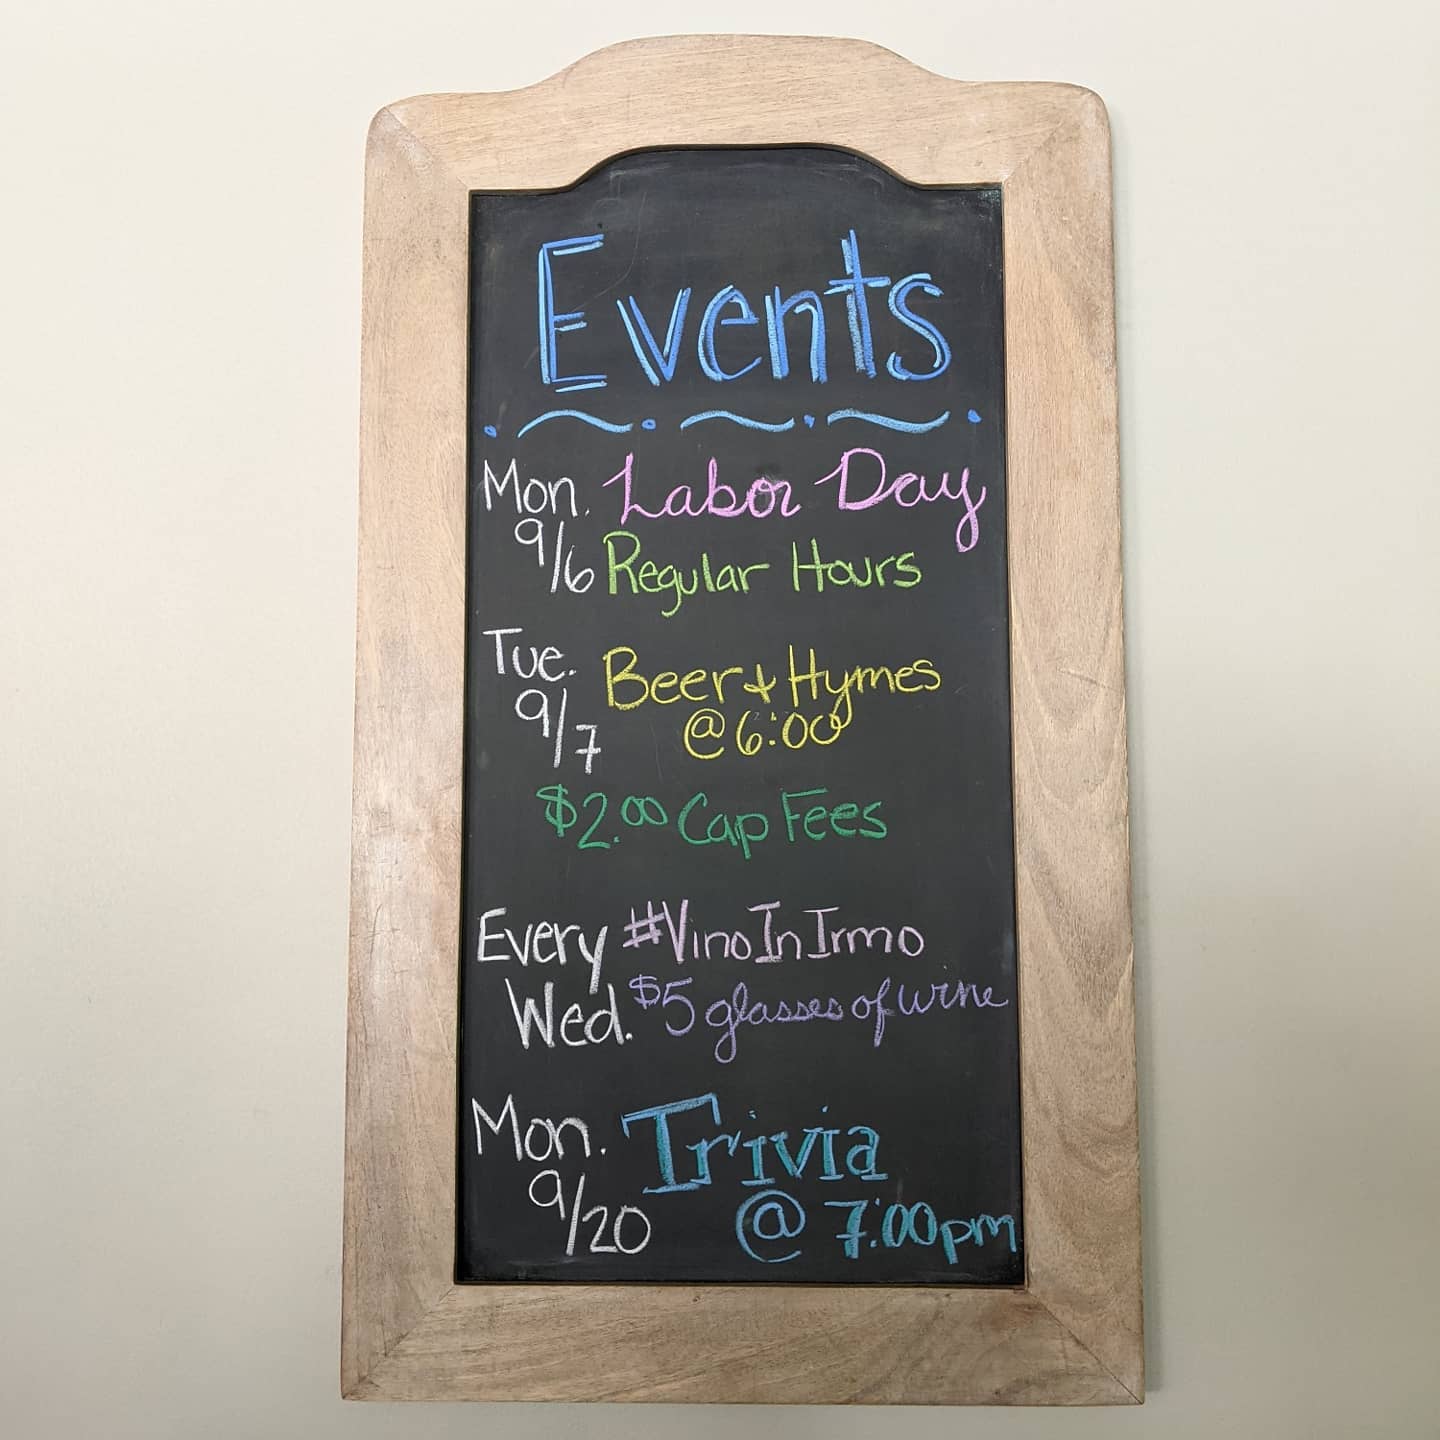 Events
Mon. Labor Day
9/6 Regular Hours
Tue. Beer & Hymes
9/7 @ 6:00
$2.00 Cap Fees
Every #VinoInIrmo
Wed. $5 glasses of wine
Mon. Trivia
9/20 @ 7:00pm